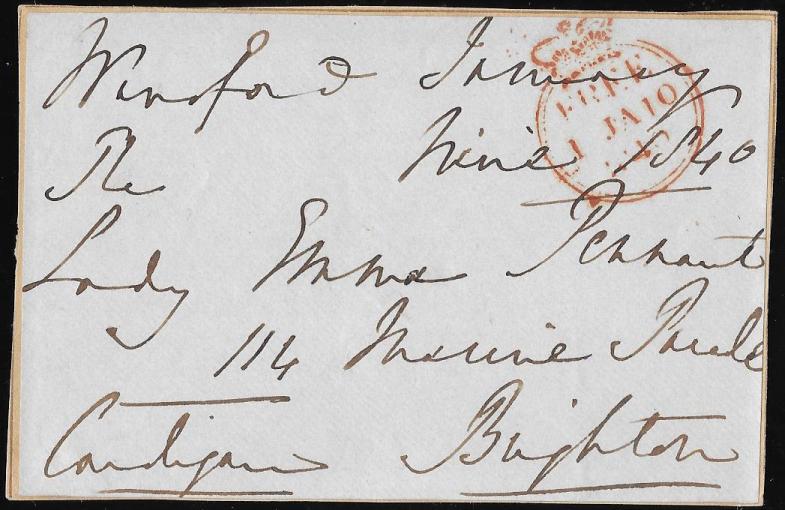 Wansford January
nine 1840
The
Lady Emma Pennant
114 Marine Parade
Cardigan Brighton
FREE
JA 10